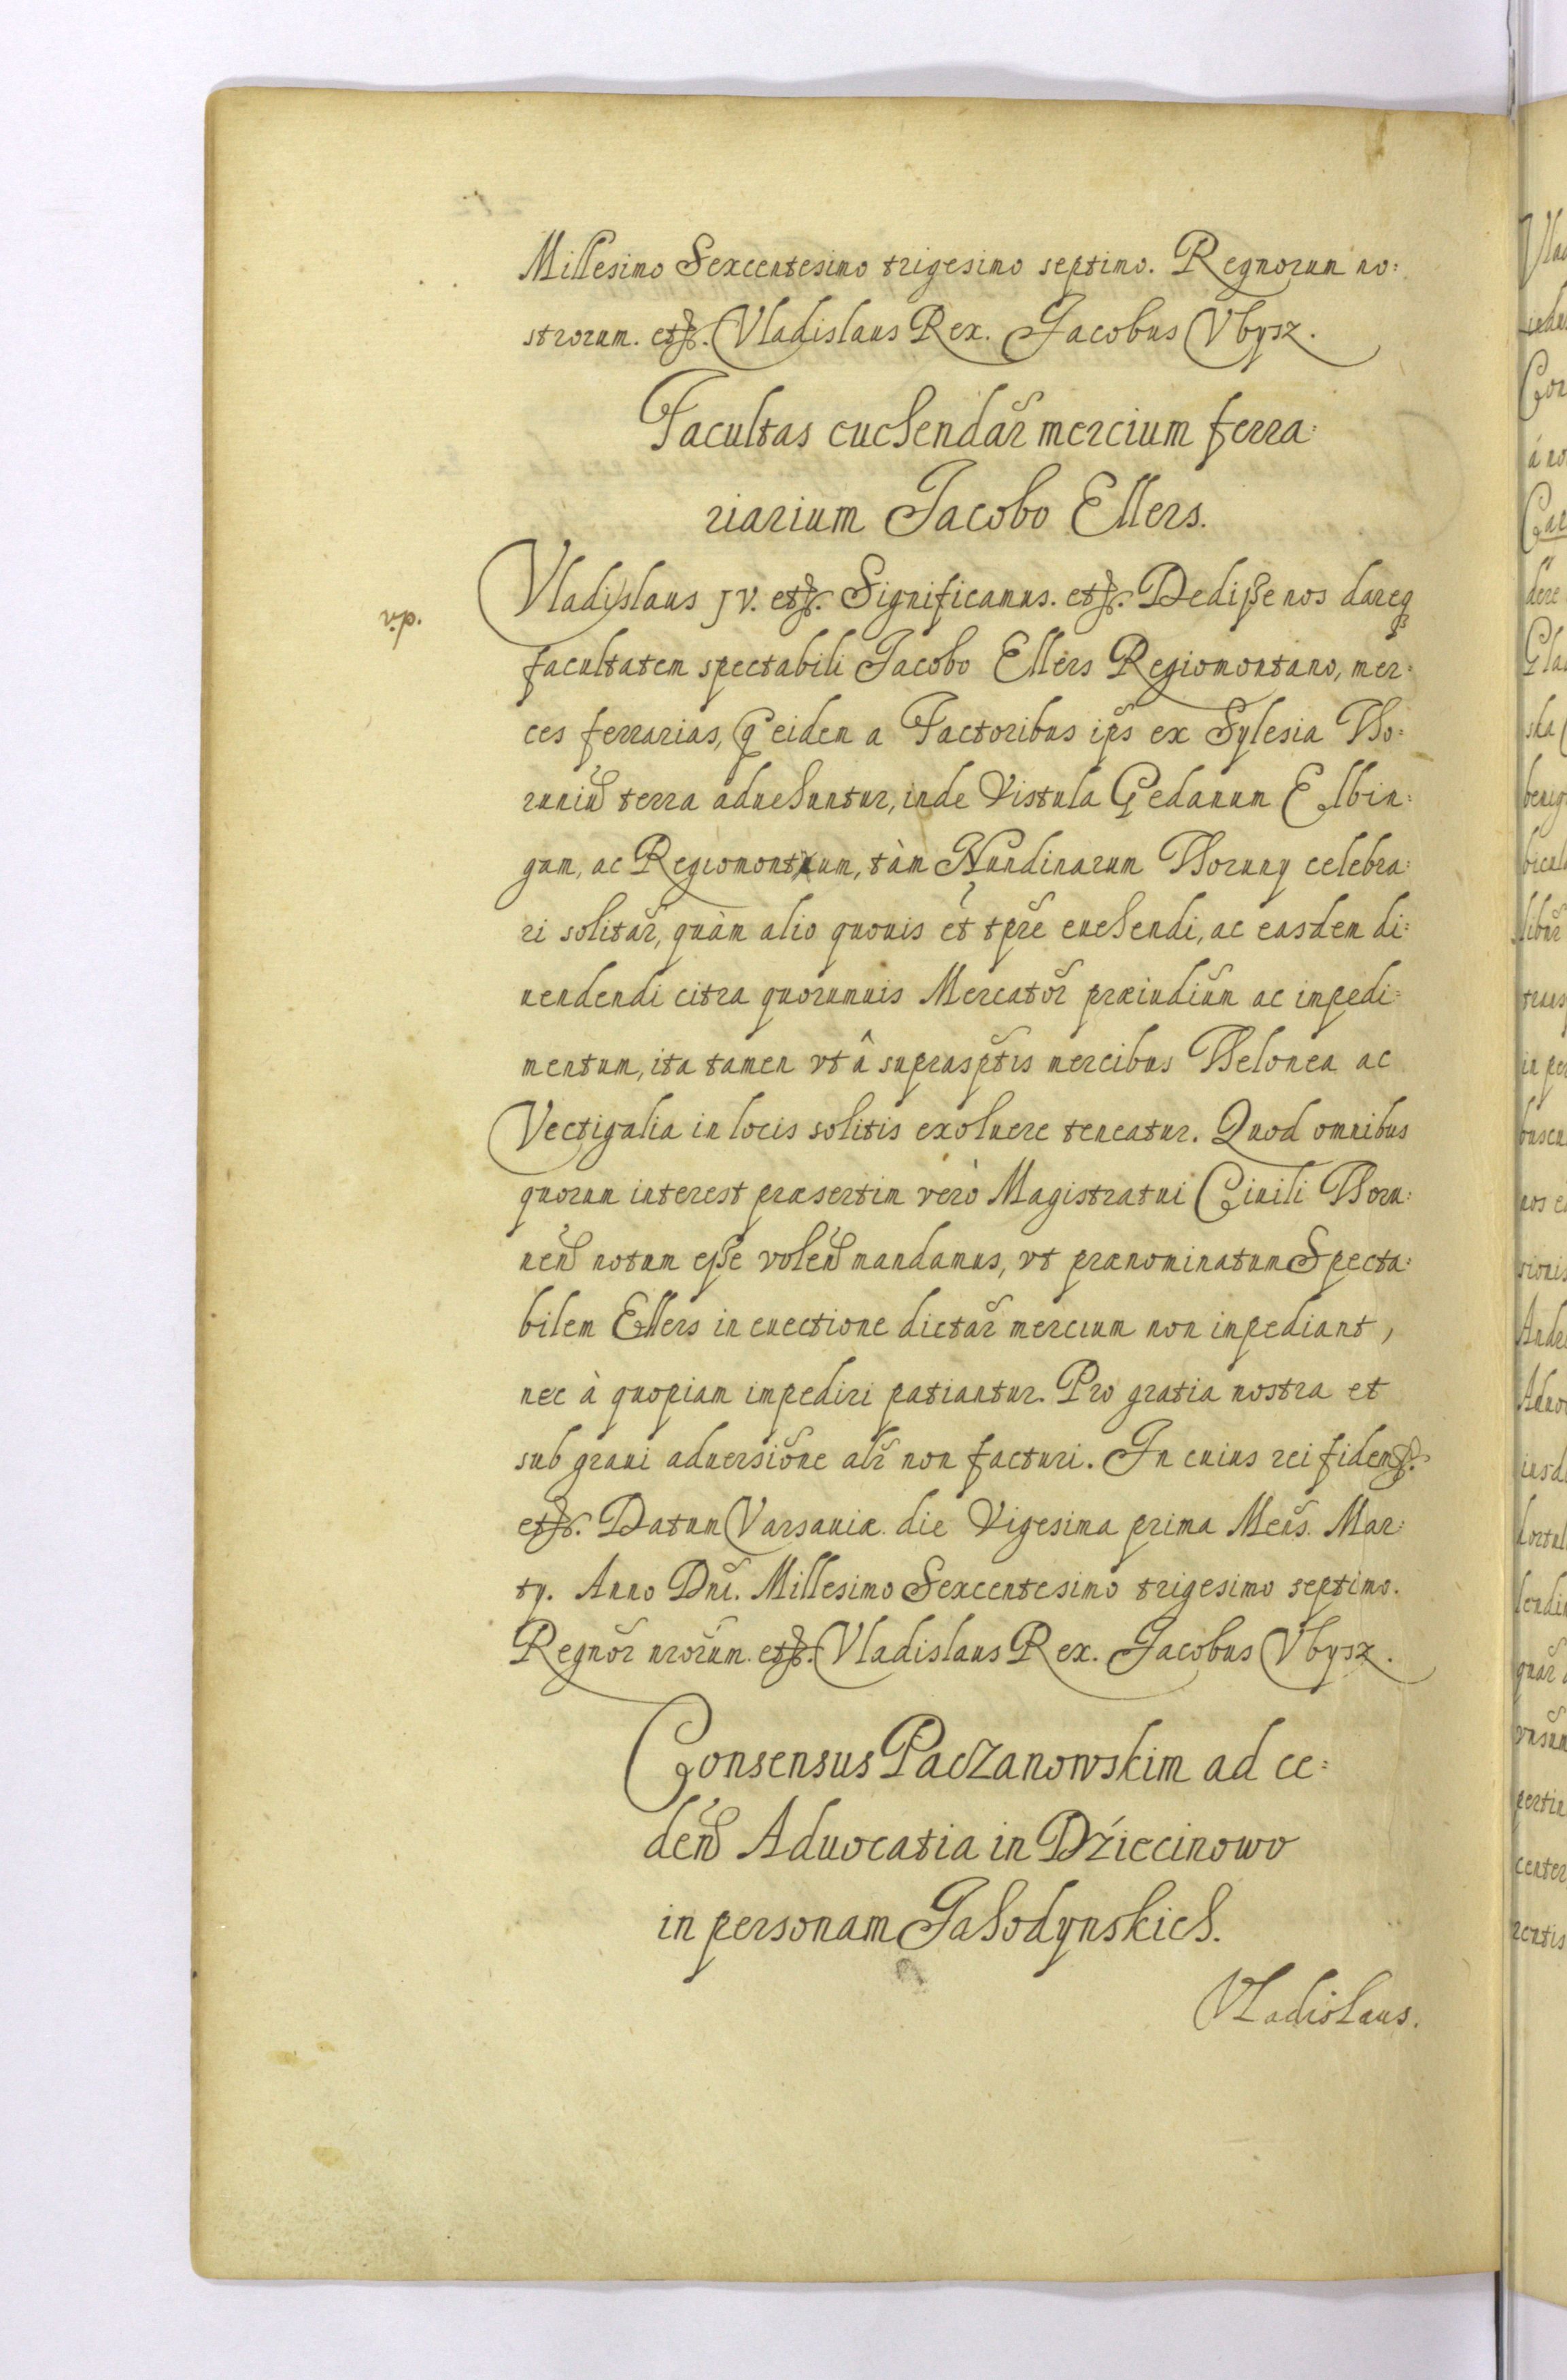 Millesimo Sexcentesimo trigesimo septimo. Regnorum no:
strorum. etc. Vladislaus Rex. Jacobus Vbysz.
Facultas euehendar̃ mercium ferra:
riarium Jacobo Ellers.
Vladislaus JV. etc. Significamus. etc. Dedisse nos dareq
facultatem spectabili Jacobo Ellers Regiomontano, mer:
ces ferrarias, q eidem a Factoribus ips̃ ex Sylesia Tho:
runiũ terra aduehuntur, inde Vistula Gedanum Elbin:
gam, ac Regiomontum, tàm Nundinarum Thoruny celebra:
ri solitar̃, quàm alio quouis et tpr̃e euehendi, ac easdem di:
uendendi citra quorumuis Mercator̃ præiudiũm ac impedi:
mentum, ita tamen vt â suprasp̃tis mercibus Thelonea ac
Vectigalia in locis solitis exoluere teneatur. Quod omnibus
quorum interest præsertim verò Magistratui Ciuili Thoru:
neñ notum esse voleñ mandamus, vt prænominatum Specta:
bilem Ellers in euectione dictar̃ mercium non inpediant,
nec à quopiam impediri patiantur. Pro gratia nostra et
sub graui aduersiõne alr̃ non facturi. In cuius rei fidem.
etc. Datum Varsauiæ. die Vigesima prima Meñs. Mar:
ty. Anno Dnĩ. Millesimo Sexcentesimo trigesimo septimo.
Regnor̃ nror̃um. etc. Vladislaus Rex. Jacobus Vbysz.
Consensus Paczanowskim ad ce:
deñ Aduocatia in Dźiecinowo
in personam Jahodynskich.
Vladislaus.